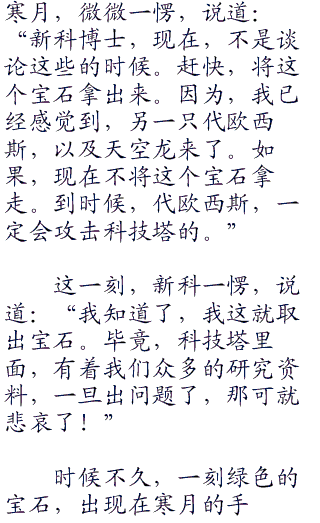 寒月，微微一愣，说道：
“新科博士，现在，不是谈
论这些的时候。赶快，将这
个宝石拿出来。因为，我已
经感觉到，另一只代欧西
斯，以及天空龙来了。如
果，现在不将这个宝石拿
走。到时候，代欧西斯，一
定会攻击科技塔的。”
这一刻，新科一愣，说
道：“我知道了，我这就取
出宝石。毕竟，科技塔里
面，有着我们众多的研究资
料，一旦出问题了，那可就
悲哀了！”
时候不久，一刻绿色的
宝石，出现在寒月的手